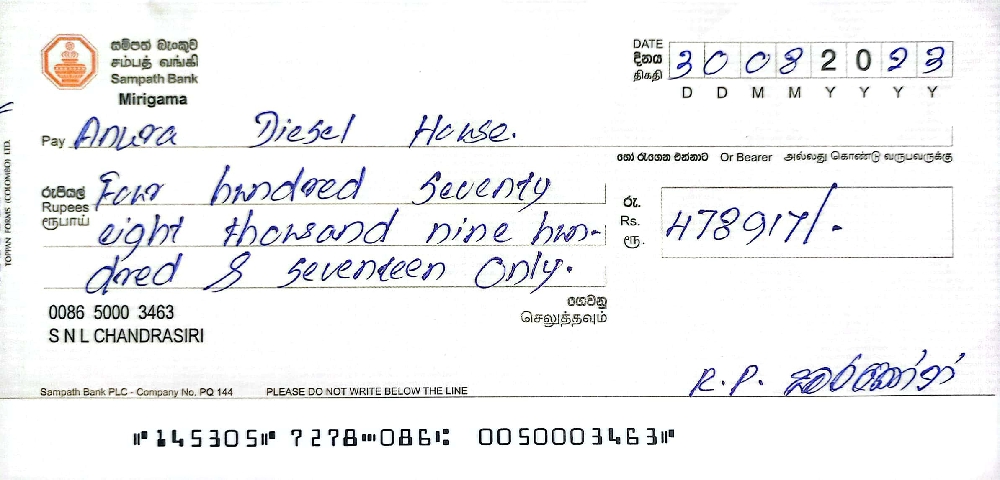 සම්පත් බැංකුව
சம்பத் வங்கி
Sampath Bank
Mirigama
DATE
දිනය
திகதி
3 0 0 8 2 0 2 3
D D M M Y Y Y Y
Pay Anura Diesel House.
හෝ රැගෙන එන්නාට Or Bearer அல்லது கொண்டு வருபவருக்கு
රුපියල්
Rupees
ரூபாய்
Four hundred seventy
eight thousand nine hun-
dred & seventeen Only.
රු.
Rs.
ரூ.
478917/-
ගෙවනු
செலுத்தவும்
0086 5000 3463
S N L CHANDRASIRI
R. P.
Sampath Bank PLC - Company No. PQ 144 PLEASE DO NOT WRITE BELOW THE LINE
⑈145305⑈ 7278⑉086⑆ 0050003463⑈
TOPPAN FORMS (COLOMBO) LTD.